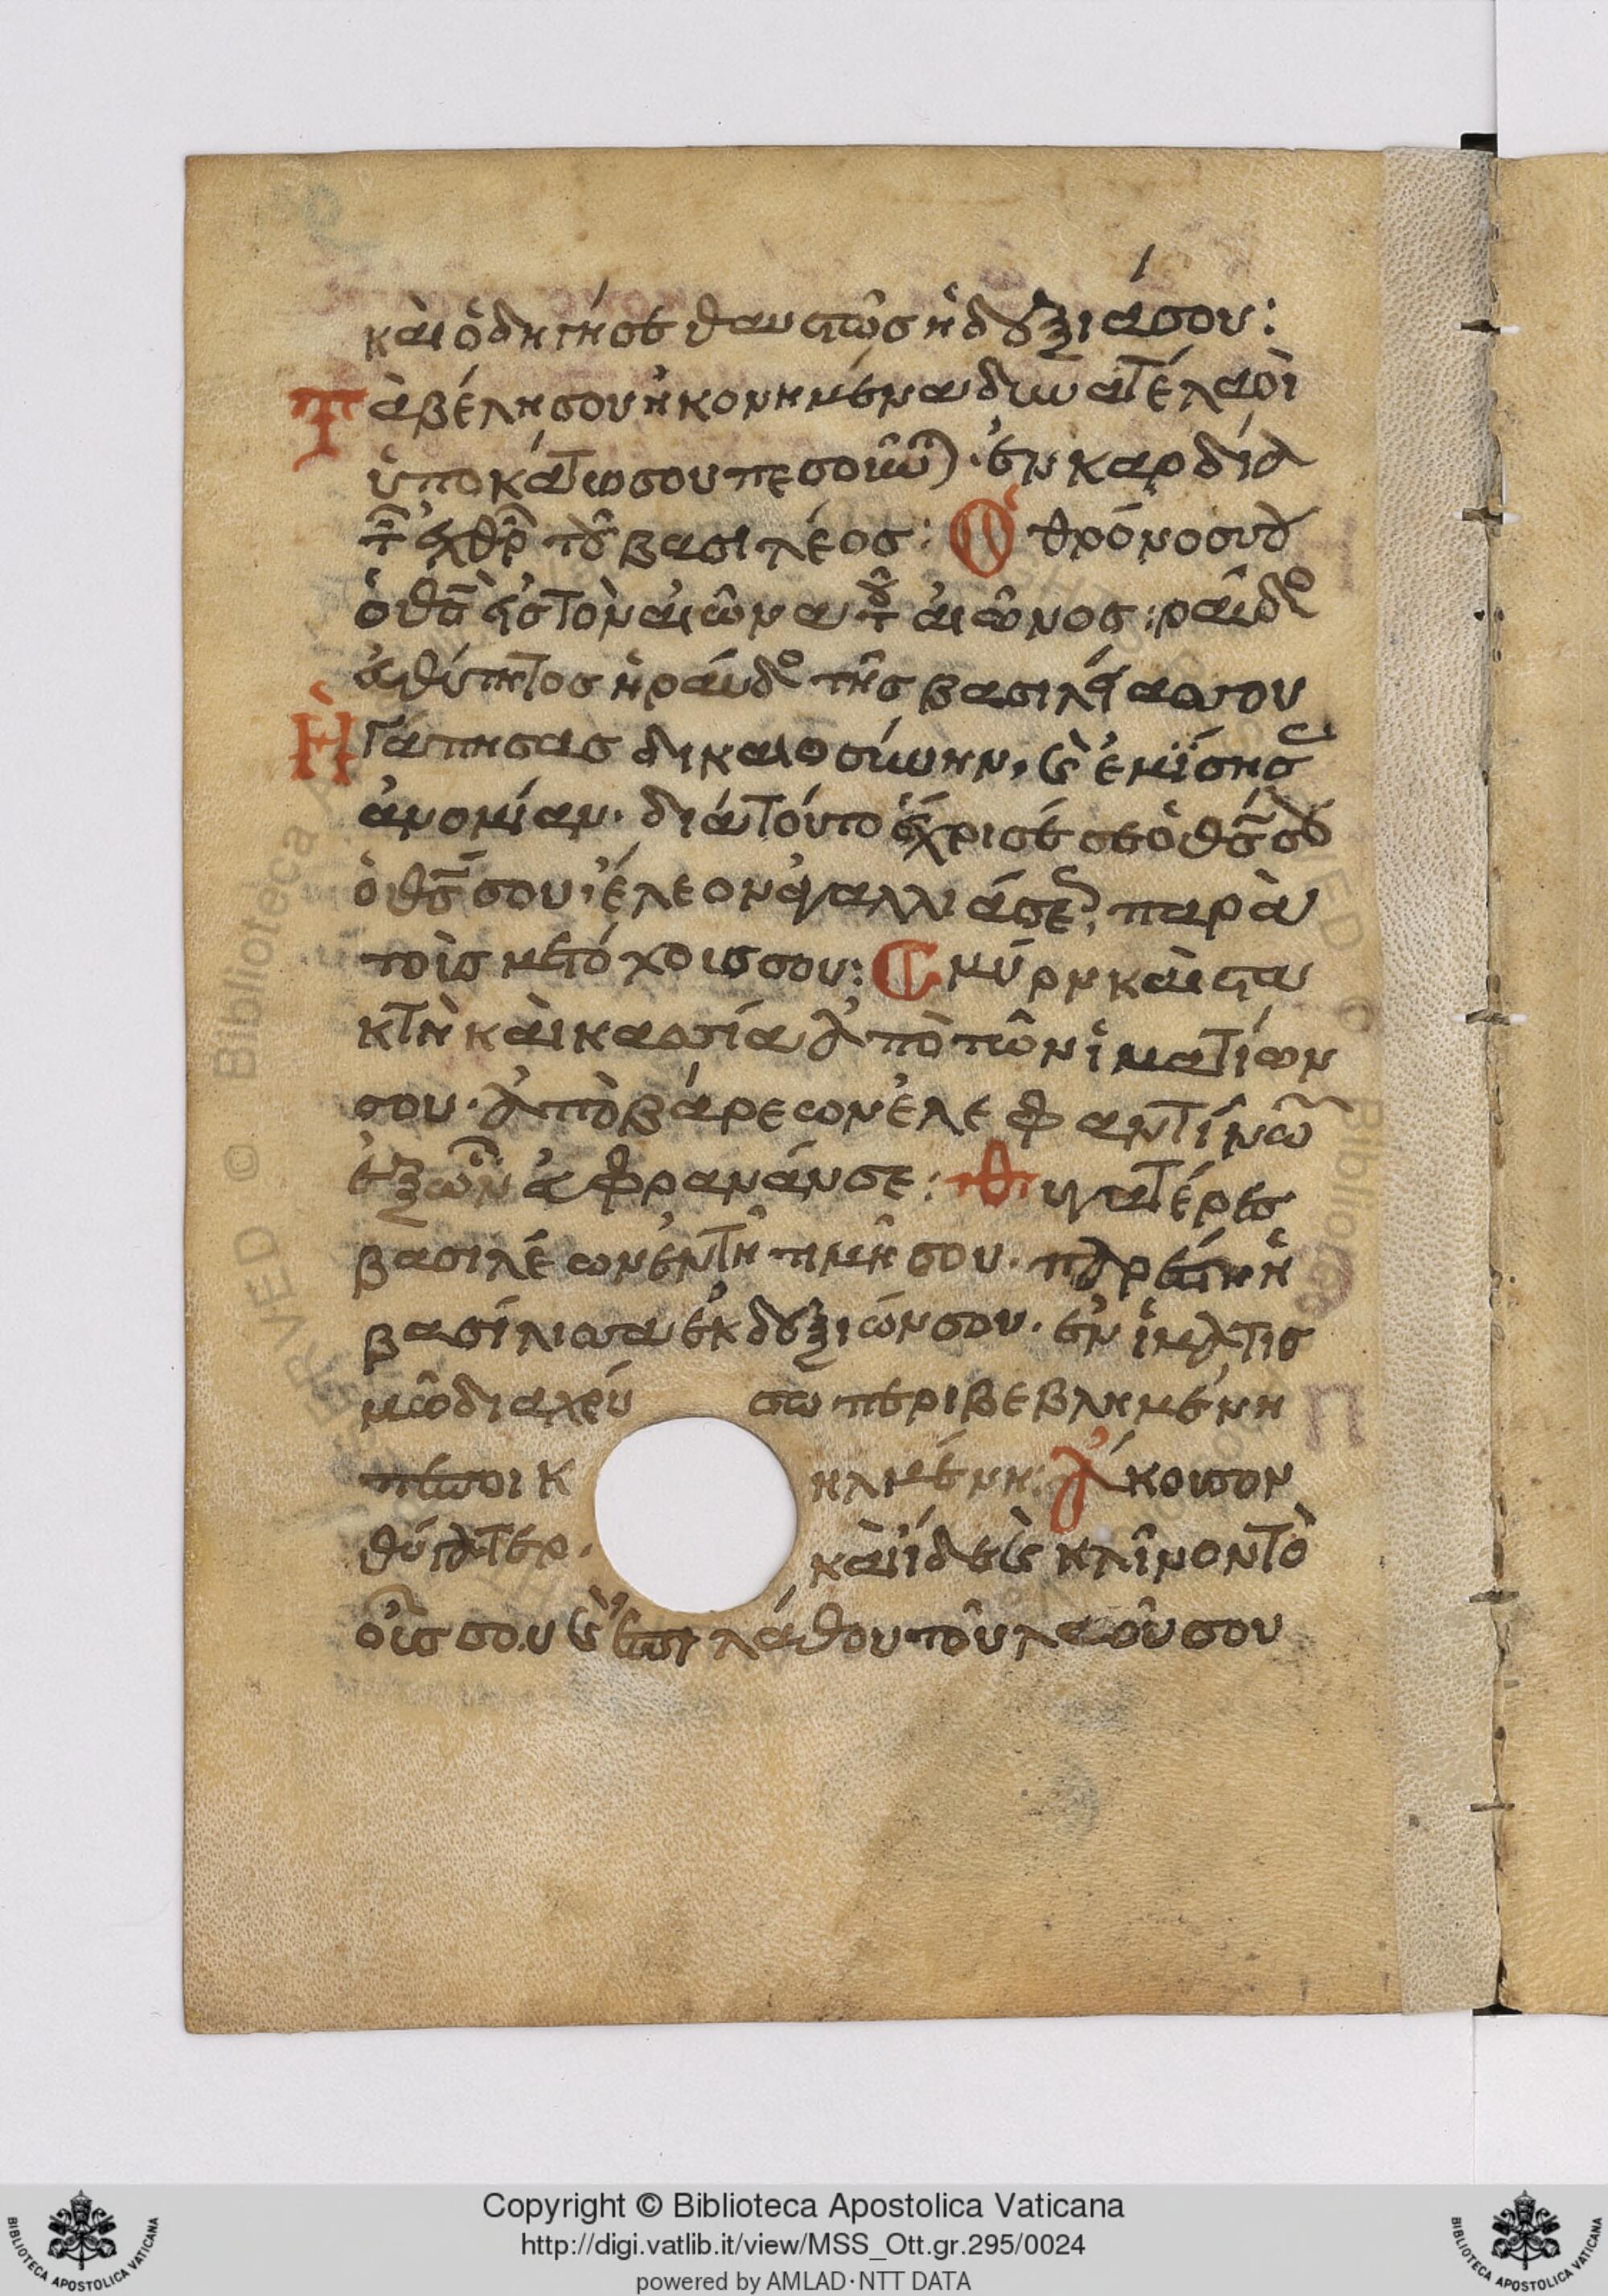 καὶ ὁδηγήσε θαυστῶσ ἡ δεξιά σου:
Τὰ βέλη σου ἠκονημένα δυνατέ λαοὶ
ὑποκάτω σου πεσοῦν) · ἐν καρδία
τ ἐχθρ τοῦ βασιλέος: Ὁ θρόνοσ σου
ὁ θς εἰσ τὸν αἰῶνα τοῦ αἰῶνος: ραῦδο
εὐθύτητος ἡ ράυδο τῆς βασιλείασ σου
Ἠγάπησας δικαιοσύνην, καὶ ἐμίσησ
ἀνομίαν· διὰ τούτο ἔχρισέ σε ὁ θς σου
ὁ θς σου, ἔλεον ἀγαλλιάσε, παρὰ
τοὶς μετόχοις σου: Σμύρν καὶ στα
κτὴ καὶ κασσία ἀπὸ τῶν ἱματίων
σου· ἀπὸ βάρεων ἐλεφαντίνων
ἐξ ὧν ἀφρανάν σε: Θυγατέρες
βασιλέων ἐν τῆ τιμῆ σου· παρέστη ἡ
βασίλισσα ἐκ δεξιών σου· ἐν ἱματισ
μῶ διαχρύσω περιβεβλημένη
πεποικηλμένη: Ἄκουσον
θύγατερ· καὶ ἴδε καὶ κλῖνον τὸ
οὖς σου καὶ ἐπιλάθου τοῦ λαοῦ σου
Copyright © Biblioteca Apostolica Vaticana
http://digi.vatlib.it/view/MSS_Ott.gr.295/0024
powered by AMLAD·NTT DATA